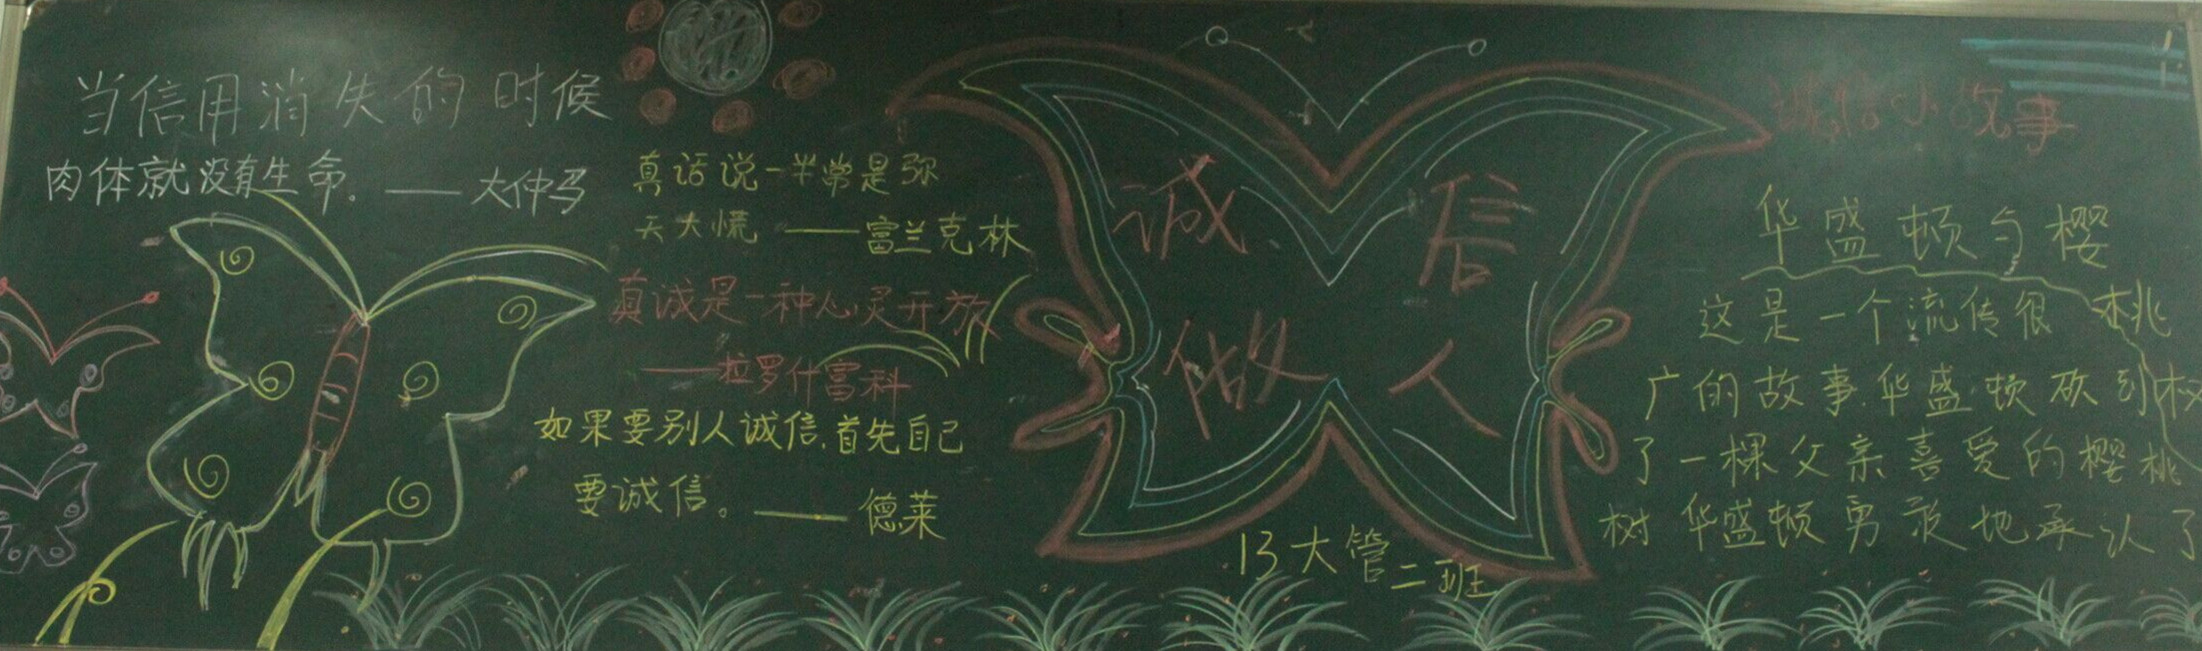 当信用消失的时候
肉体就没有生命。——大仲马
真话说一半常是弥
天大慌——富兰克林
真诚是一种心灵开放
——拉罗什富科
如果要别人诚信,首先自己
要诚信。——德莱
诚信
做人
13大管二班
诚信小故事
华盛顿与樱
桃树
这是一个流传很
广的故事.华盛顿砍到
了一棵父亲喜爱的樱桃
树 华盛顿勇敢地承认了